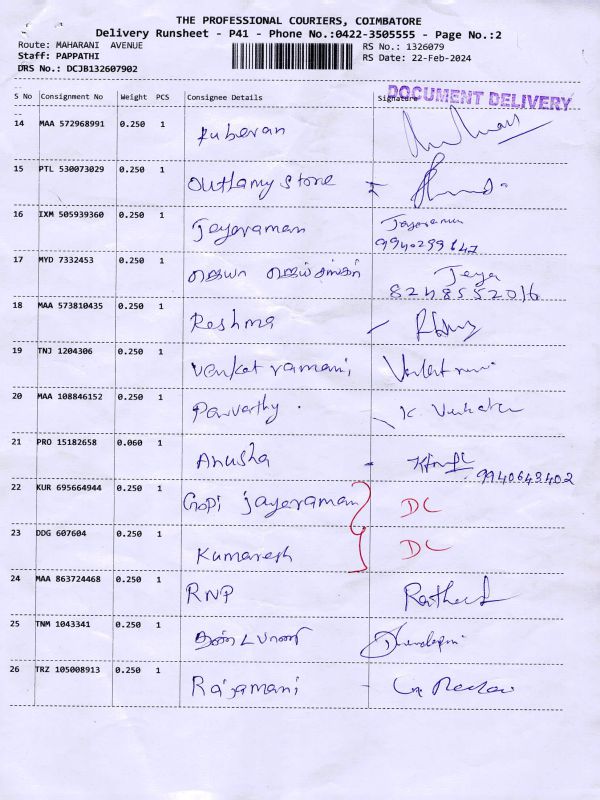 THE PROFESSIONAL COURIERS, COIMBATORE
Delivery Runsheet - P41 - Phone No.:0422-3505555 - Page No.:2
Route: MAHARANI AVENUE RS No.: 1326079
Staff: PAPPATHI RS Date: 22-Feb-2024
DRS No.: DCJB132607902
DOCUMENT DELIVERY
S No Consignment No Weight PCS Consignee Details Signature
14 MAA 572968991 0.250 1 Kuberan
15 PTL 530073029 0.250 1 Outlamy stone
16 IXM 505939360 0.250 1 Jeyaraman Jayaraman
9940299647
17 MYD 7332453 0.250 1 ஜெயா ஜெய்சங்கர் Jeya
8248552016
18 MAA 573810435 0.250 1 Reshma
19 TNJ 1204306 0.250 1 Venkat ramani
20 MAA 108846152 0.250 1 Parvathy . K. Venkata
21 PRO 15182658 0.060 1 Anusha
9940649402
22 KUR 695664944 0.250 1 Gopi jayaraman DC
23 DDG 607604 0.250 1 Kumaresh DC
24 MAA 863724468 0.250 1 RNP
25 TNM 1043341 0.250 1 தண்டபாணி
26 TRZ 105008913 0.250 1 Rajamani